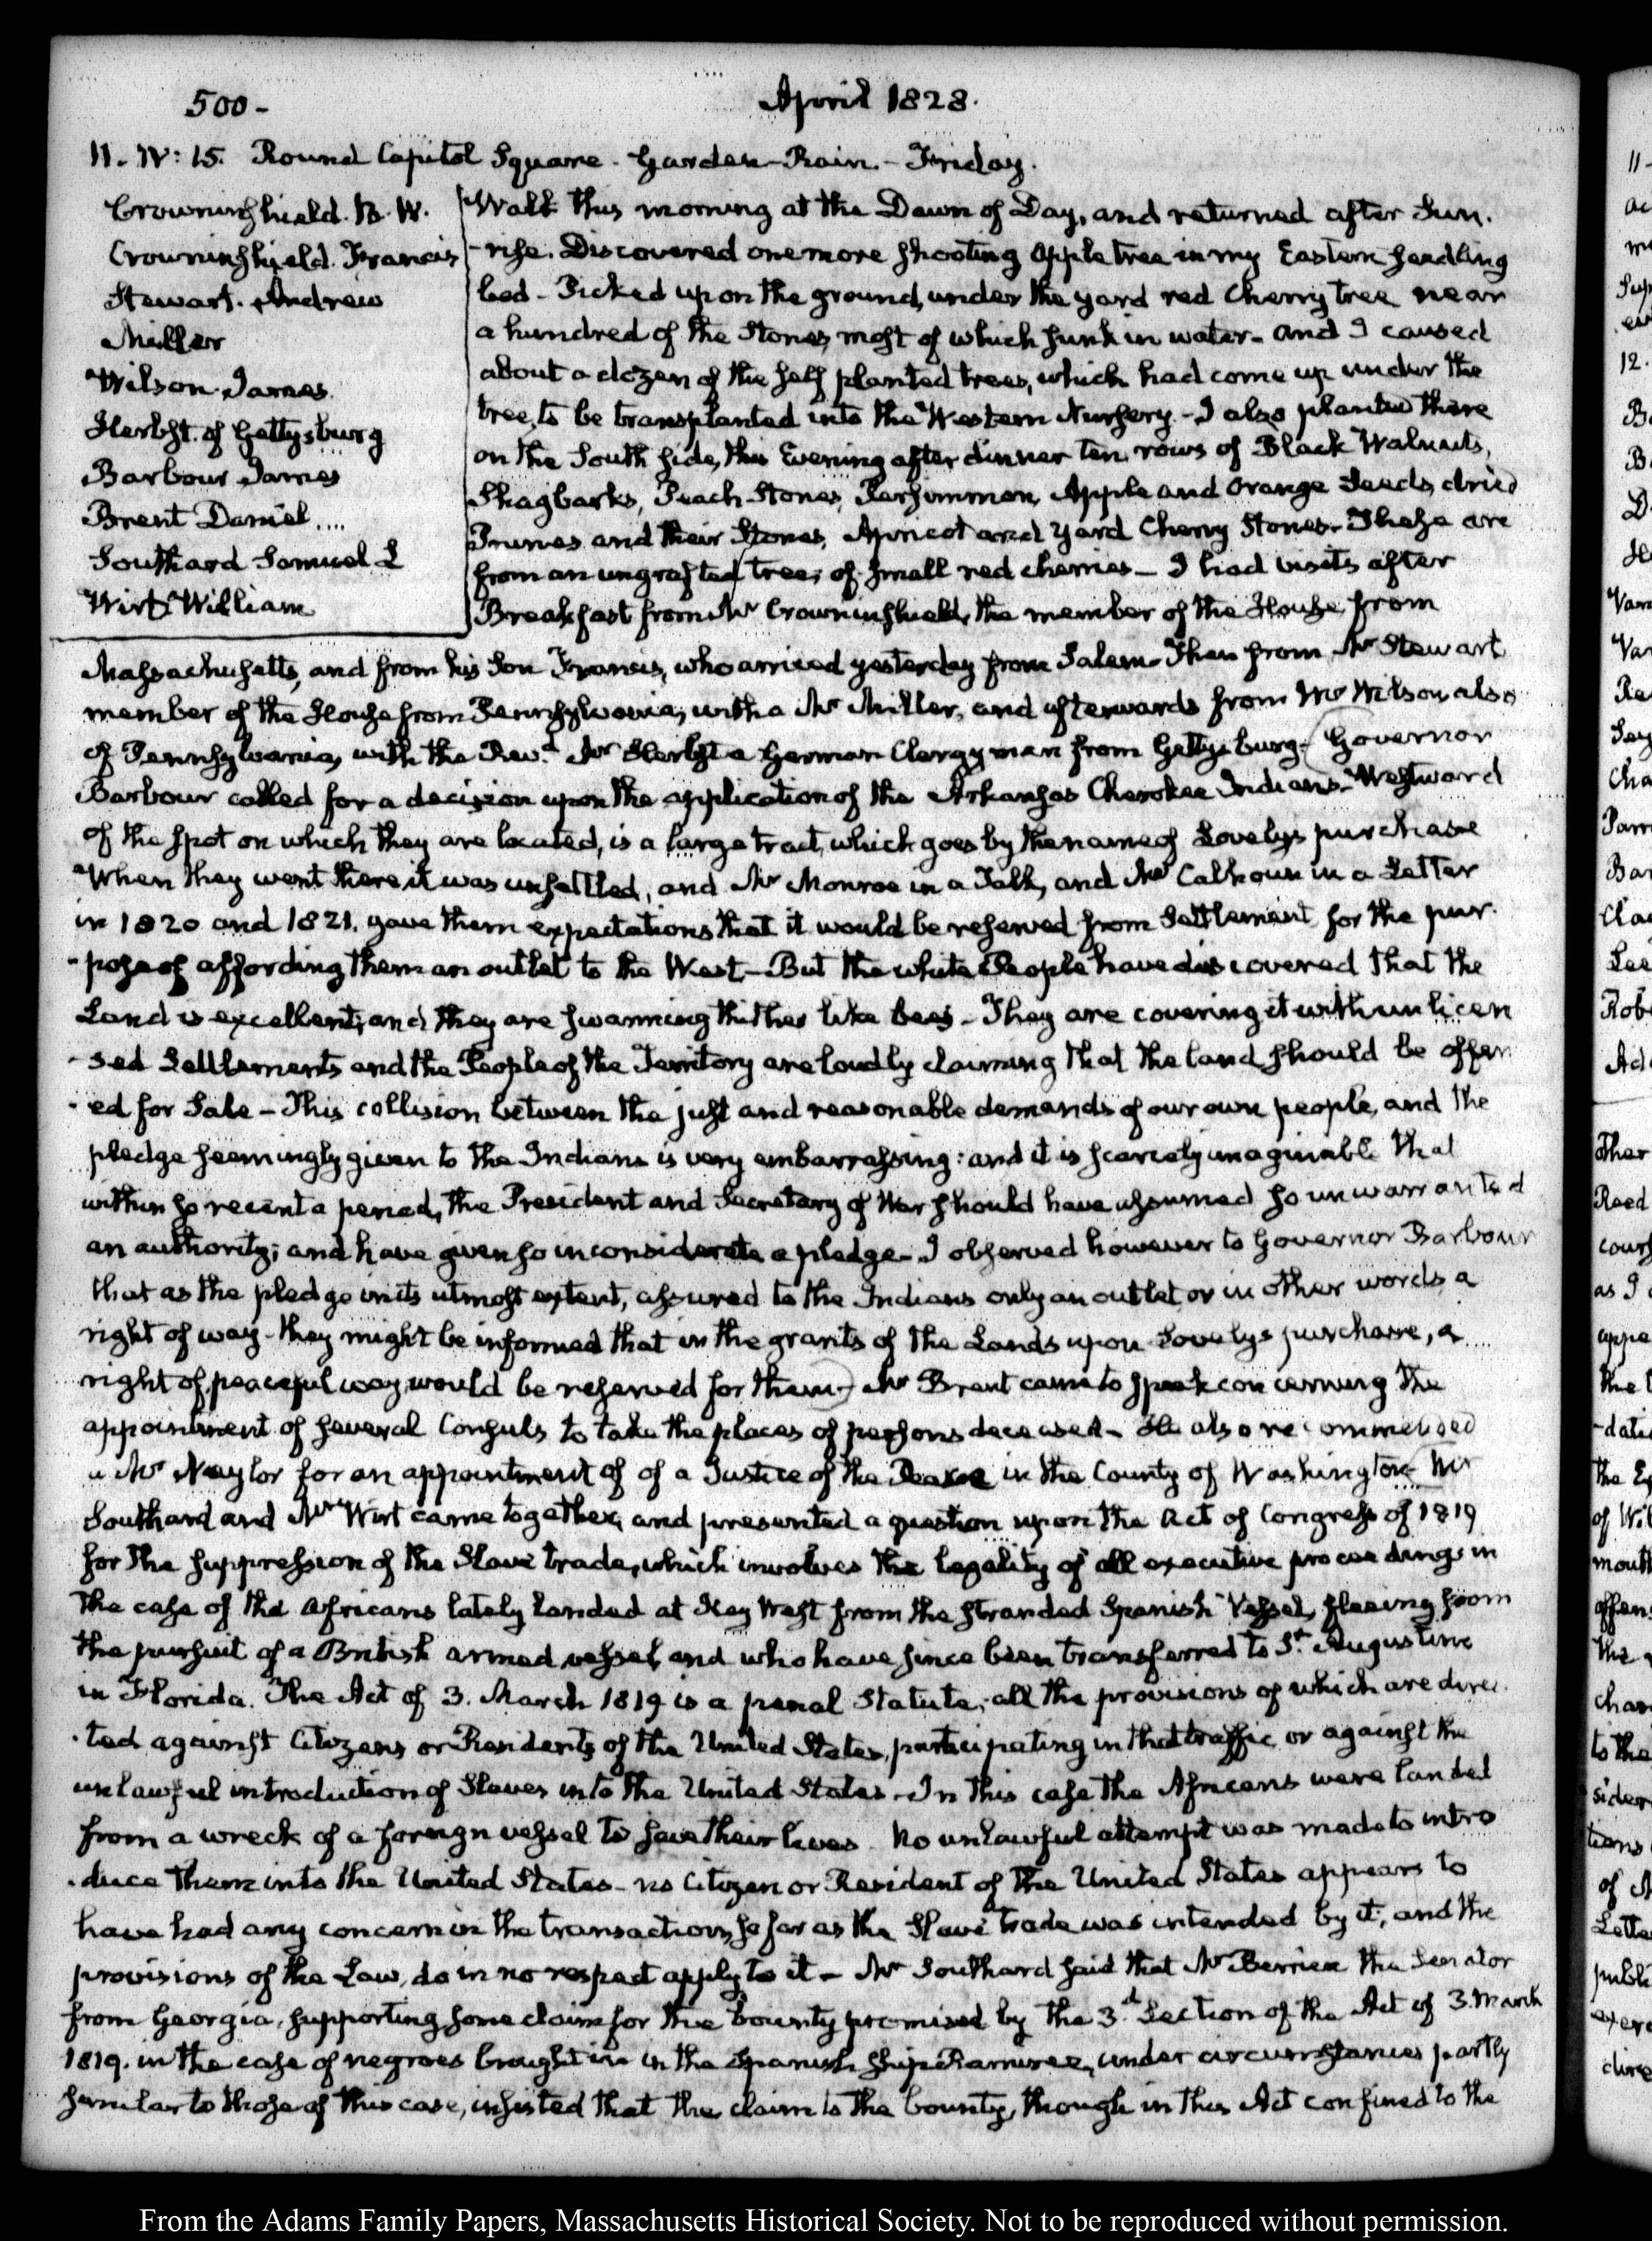 500-
April 1828.
11. IV: 15. Round Capitol Square. Garden-Rain.- Friday.
Crowninshield. B. W.
Crowninshield. Francis
Stewart. Andrew
Miller
Wilson. James.
Herbst. of Gettysburg
Barbour James
Brent Daniel....
Southard Samuel L
Wirt William
Walk this morning at the Dawn of Day, and returned after Sun.
-rise. Discovered one more shooting Apple tree in my Eastern seedling
bed - Picked up on the ground, under the yard red Cherry tree near
a hundred of the Stones, most of which sunk in water- and I caused
about a dozen of the self planted trees, which had come up under the
tree, to be transplanted into the Western Nursery.- I also planted there
on the South side, this Evening after dinner ten rows of Black Walnuts,
Shagbarks, Peach Stones, Persimmon, Apple and Orange Seeds, dried
Prunes and their Stones, Apricot and Yard Cherry Stones- These are
from an ungrafted tree, of small red cherries- I had visits after
Breakfast from Mr Crowninshield, the member of the House from
Massachusetts, and from his Son Francis, who arrived yesterday from Salem- Then from Mr Stewart
member of the House from Pennsylvania, with a Mr Miller, and afterwards from Mr Wilson also
of Pennsylvania, with the Revd. Mr Herbst a German Clergyman from Gettysburg- Governor
Barbour called for a decision upon the application of the Arkansas Cherokee Indians- Westward
of the spot on which they are located, is a large tract, which goes by the name of Lovely's purchase
When they went there it was unsettled, and Mr Monroe in a Talk, and Mr Calhoun in a Letter
in 1820 and 1821. gave them expectations that it would be reserved from Settlement for the pur-
-pose of affording them an outlet to the West- But the white People have discovered that the
Land is excellent, and they are swarming thither like bees- They are covering it with unlicen
-sed Settlements and the People of the Territory are loudly claiming that the land should be offer
-ed for Sale- This collision between the just and reasonable demands of our own people, and the
pledge seemingly given to the Indians is very embarrassing: and it is scarcely imaginable that
within so recent a period, the President and Secretary of War should have assumed so unwarranted
an authority; and have given so inconsiderate a pledge- I observed however to Governor Barbour
that as the pledge in its utmost extent, assured to the Indians only an outlet or in other words a
right of way- they might be informed that in the grants of the Lands upon Lovely's purchase, a
right of peaceful way would be reserved for them- Mr Brent came to speak concerning the
appointment of several Consuls to take the places of persons deceased- He also recommended
a Mr Naylor for an appointment of of a Justice of the Peace in the County of Washington- Mr
Southard and Mr Wirt came together, and presented a question upon the Act of Congress of 1819
for the suppression of the Slave trade, which involves the legality of all executive proceedings in
the case of the Africans lately landed at Key West from the stranded Spanish Vessel, fleeing from
the pursuit of a British armed vessel, and who have since been transferred to St. Augustine
in Florida. The Act of 3. March 1819 is a penal Statute, all the provisions of which are direc
-ted against Citizens or Residents of the United States, participating in that traffic, or against the
unlawful introduction of Slaves into the United States. In this case the Africans were landed
from a wreck of a foreign vessel to save their lives. No unlawful attempt was made to intro
-duce them into the United States- no Citizen or Resident of the United States appears to
have had any concern in the transaction, so far as the Slave trade was intended by it; and the
provisions of the Law, do in no respect apply to it- Mr Southard said that Mr Berrien the Senator
from Georgia, supporting some claim for the bounty promised by the 3d. Section of the Act of 3. March
1819. in the case of negroes brought in in the Spanish Ship Ramirez, under circumstances partly
similar to those of this case, insisted that the claim to the bounty, though in this Act confined to the
From the Adams Family Papers, Massachusetts Historical Society. Not to be reproduced without permission.